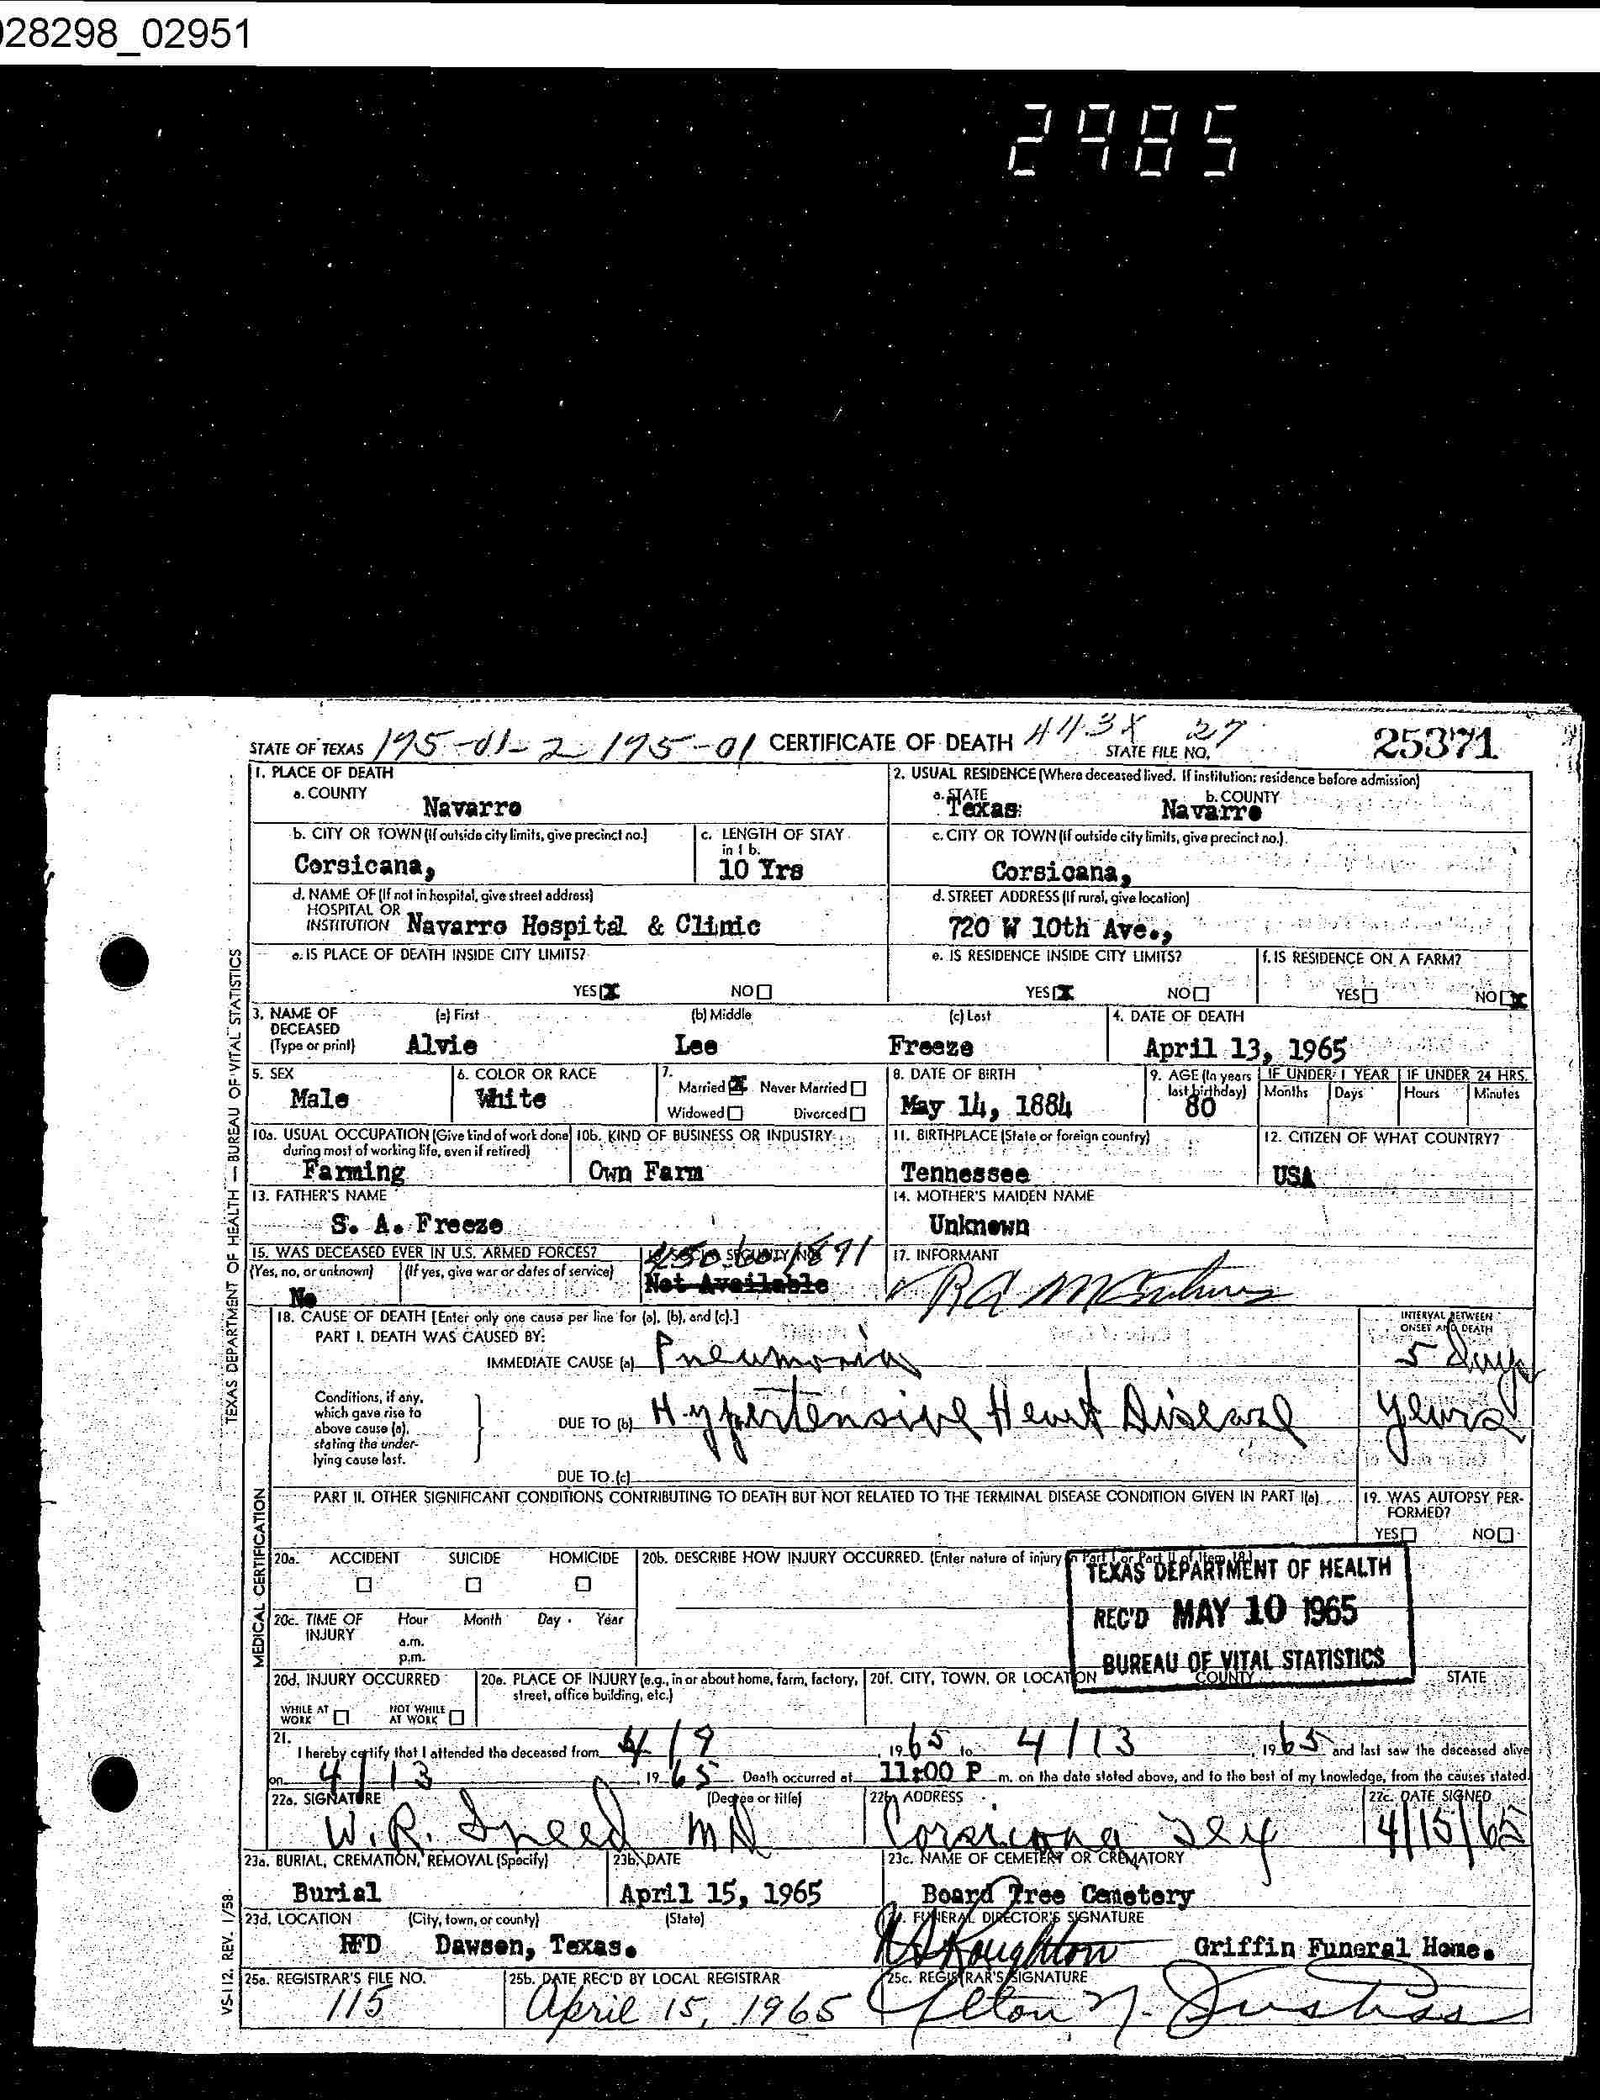 028298_02951
2985
STATE OF TEXAS 175-01-2 175-01 CERTIFICATE OF DEATH 443X 27 STATE FILE NO. 25371
1. PLACE OF DEATH
a. COUNTY
Navarro
2. USUAL RESIDENCE (Where deceased lived. If institution: residence before admission)
a. STATE b. COUNTY
Texas Navarro
b. CITY OR TOWN (If outside city limits, give precinct no.)
Corsicana,
c. LENGTH OF STAY in 1 b.
10 Yrs
c. CITY OR TOWN (If outside city limits, give precinct no.)
Corsicana,
d. NAME OF (If not in hospital, give street address)
HOSPITAL OR
INSTITUTION Navarro Hospital & Clinic
d. STREET ADDRESS (If rural, give location)
720 W 10th Ave.,
e. IS PLACE OF DEATH INSIDE CITY LIMITS?
YES X NO
e. IS RESIDENCE INSIDE CITY LIMITS?
YES X NO
f. IS RESIDENCE ON A FARM?
YES NO X
3. NAME OF DECEASED (Type or print)
(a) First (b) Middle (c) Last
Alvie Lee Freeze
4. DATE OF DEATH
April 13, 1965
5. SEX
Male
6. COLOR OR RACE
White
7.
Married X Never Married
Widowed Divorced
8. DATE OF BIRTH
May 14, 1884
9. AGE (In years last birthday)
80
IF UNDER 1 YEAR IF UNDER 24 HRS.
Months Days Hours Minutes
10a. USUAL OCCUPATION (Give kind of work done during most of working life, even if retired)
Farming
10b. KIND OF BUSINESS OR INDUSTRY
Own Farm
11. BIRTHPLACE (State or foreign country)
Tennessee
12. CITIZEN OF WHAT COUNTRY?
USA
13. FATHER'S NAME
S. A. Freeze
14. MOTHER'S MAIDEN NAME
Unknown
15. WAS DECEASED EVER IN U.S. ARMED FORCES?
(Yes, no, or unknown) (If yes, give war or dates of service)
No
16. SOCIAL SECURITY NO.
Not Available
17. INFORMANT
18. CAUSE OF DEATH [Enter only one cause per line for (a), (b), and (c).]
PART I. DEATH WAS CAUSED BY:
IMMEDIATE CAUSE (a) Pneumonia
INTERVAL BETWEEN ONSET AND DEATH
5 days
Conditions, if any, which gave rise to above cause (a), stating the underlying cause last.
DUE TO (b) Hypertensive Heart Disease years
DUE TO (c)
PART II. OTHER SIGNIFICANT CONDITIONS CONTRIBUTING TO DEATH BUT NOT RELATED TO THE TERMINAL DISEASE CONDITION GIVEN IN PART I(a)
19. WAS AUTOPSY PERFORMED?
YES NO
20a. ACCIDENT SUICIDE HOMICIDE
20b. DESCRIBE HOW INJURY OCCURRED. (Enter nature of injury in Part I or Part II of Item 18.)
TEXAS DEPARTMENT OF HEALTH
REC'D MAY 10 1965
BUREAU OF VITAL STATISTICS
20c. TIME OF INJURY
Hour Month Day Year
a.m.
p.m.
20d. INJURY OCCURRED
WHILE AT WORK NOT WHILE AT WORK
20e. PLACE OF INJURY (e.g., in or about home, farm, factory, street, office building, etc.)
20f. CITY, TOWN, OR LOCATION COUNTY STATE
21.
I hereby certify that I attended the deceased from 4/9, 1965 to 4/13, 1965 and last saw the deceased alive
on 4/13, 1965. Death occurred at 11:00 P m. on the date stated above, and to the best of my knowledge, from the causes stated.
22a. SIGNATURE (Degree or title)
W. R. Sneed MD
22b. ADDRESS
Corsicana Tex
22c. DATE SIGNED
4/15/65
23a. BURIAL, CREMATION, REMOVAL (Specify)
Burial
23b. DATE
April 15, 1965
23c. NAME OF CEMETERY OR CREMATORY
Board Tree Cemetery
23d. LOCATION (City, town, or county) (State)
RFD Dawson, Texas.
24. FUNERAL DIRECTOR'S SIGNATURE
Griffin Funeral Home.
25a. REGISTRAR'S FILE NO.
115
25b. DATE REC'D BY LOCAL REGISTRAR
April 15, 1965
25c. REGISTRAR'S SIGNATURE
TEXAS DEPARTMENT OF HEALTH — BUREAU OF VITAL STATISTICS
MEDICAL CERTIFICATION
VS-112. REV. 1/58